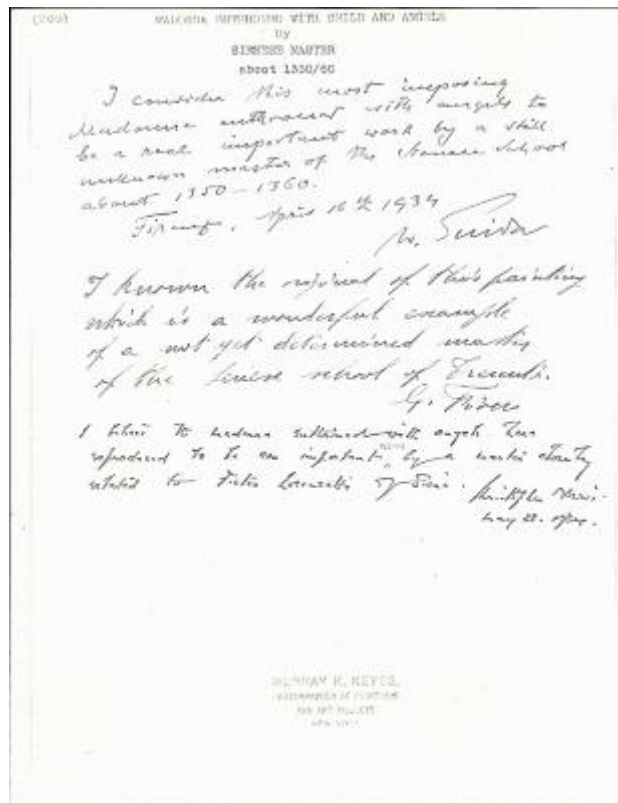 (200) MADONNA ENTHRONED WITH CHILD AND ANGELS
by
SIENESE MASTER
about 1350/60
I consider this most imposing
Madonna enthroned with angels to
be a real important work by a still
unknown master of the Sienese School
about 1350-1360.
Firenze, April 16th 1934
W. Suida
I known the original of this painting
which is a wonderful example
of a not yet determined master
of the Sienese school of
G. Fiocco
I believe the madonna enthroned with angels here
reproduced to be an important work by a master closely
related to Pietro Lorenzetti of Siena.
May 28.
MURRAY K. KEYES,
PHOTOGRAPHER OF PAINTINGS
AND ART OBJECTS
NEW YORK